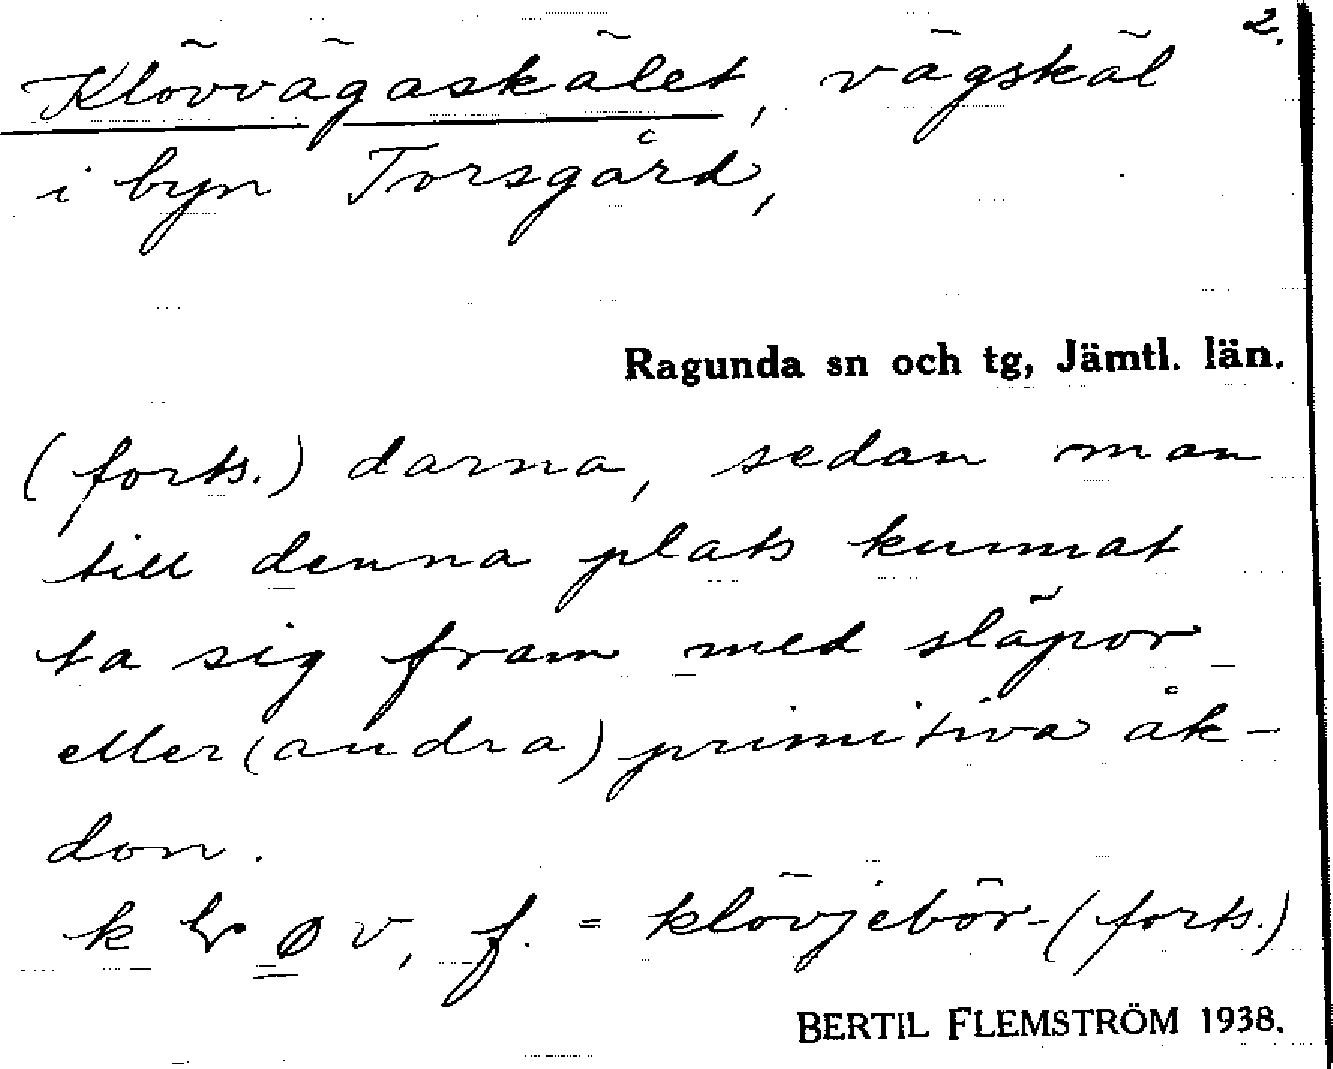 2.
Klövvägaskälet, vägskäl
i byn Torsgård,
Ragunda sn och tg, Jämtl. län.
(forts.) darna, sedan man
till denna plats kunnat
ta sig fram med släpor
eller (andra) primitiva åk-
don.
k v, f. = klövjebör- (forts.)
BERTIL FLEMSTRÖM 1938.